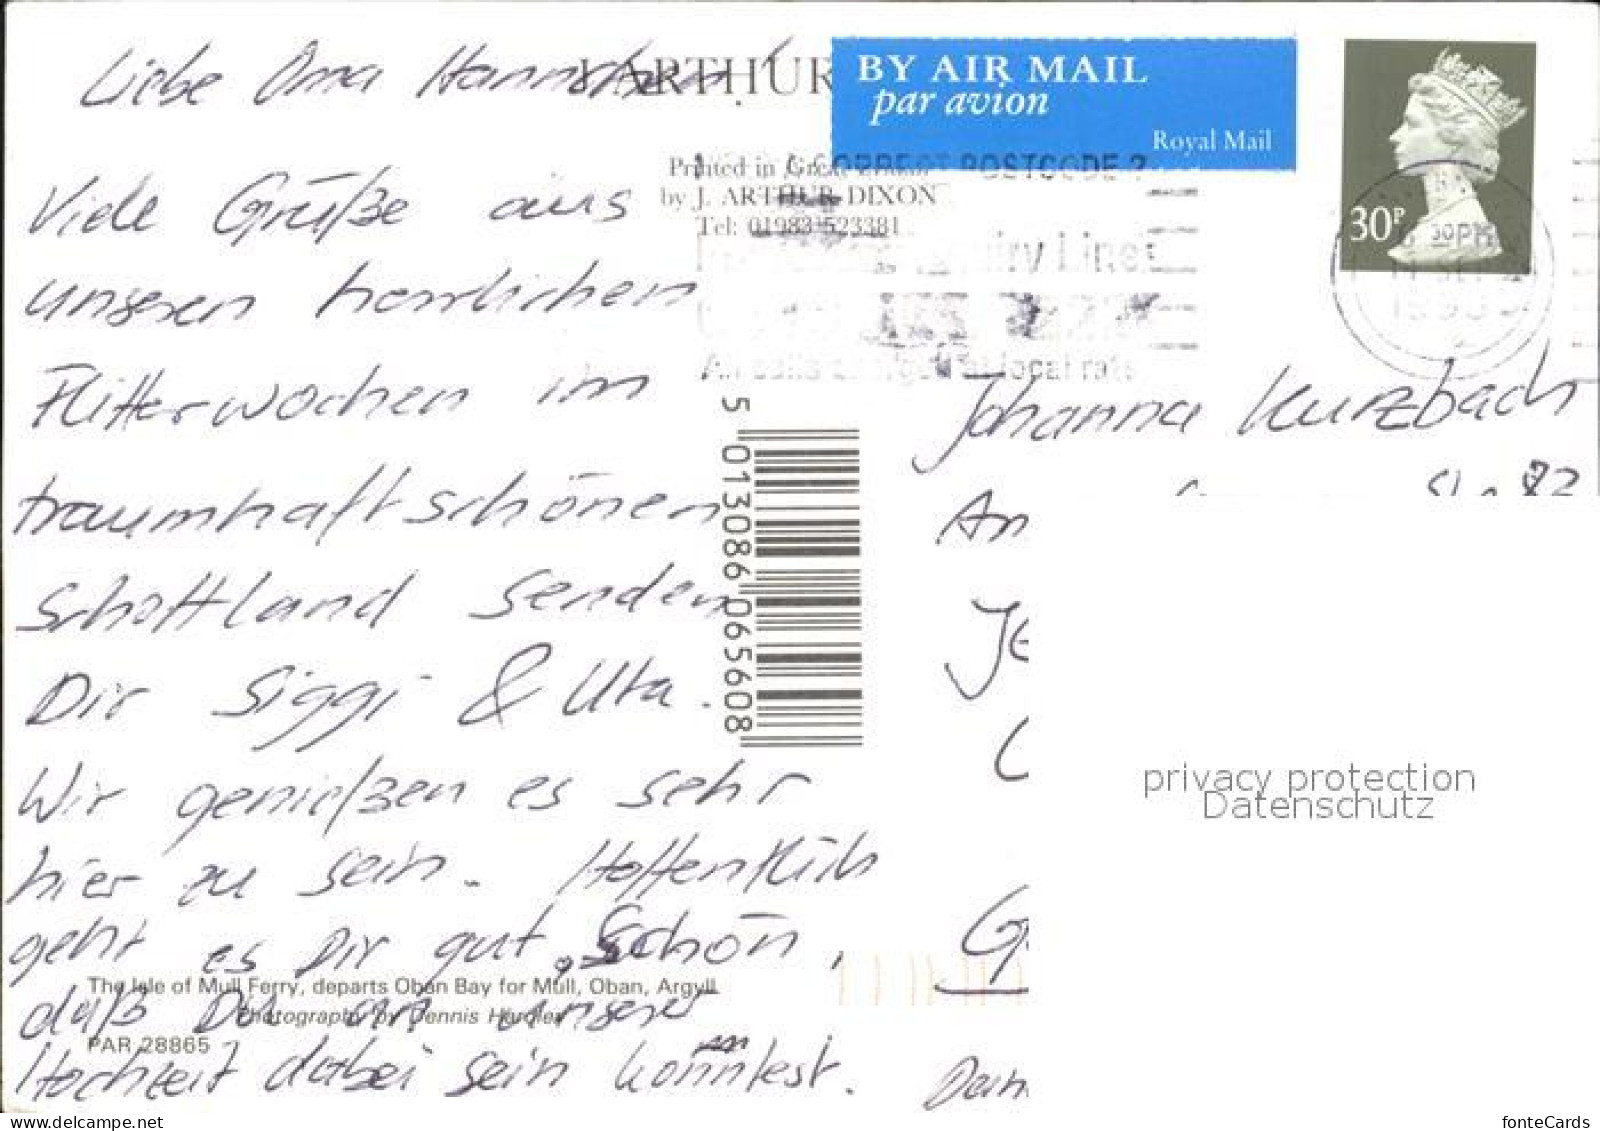 Liebe Oma Hannchen!
Viele Grüße aus
unseren herrlichen
Flitterwochen im
traumhaft schönen
Schottland senden
Dir Siggi & Uta.
Wir genießen es sehr
hier zu sein. Hoffentlich
geht es Dir gut. Schön,
daß Du an unserer
Hochzeit dabei sein konntest.
J. ARTHUR
Printed in Great Britain
by J. ARTHUR DIXON
Tel: 01983 523381
BY AIR MAIL
par avion
Royal Mail
30P
POSTCODE ?
All calls charged at local rate
5 013086 065608
Johanna Kurzbach
The Isle of Mull Ferry, departs Oban Bay for Mull, Oban, Argyll
Photography by Dennis Hardley
PAR 28865
privacy protection
Datenschutz
www.ansichtskartenwelt.de
fonteCards